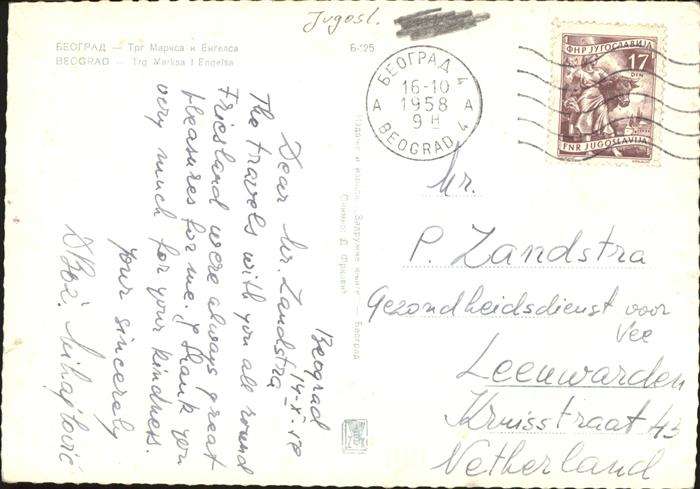 Jugosl.
БЕОГРАД — Трг Маркса и Енгелса
BEOGRAD — Trg Marksa i Engelsa
Б-125
БЕОГРАД 4
16-10
1958
9 H
A A
BEOGRAD 4
ФНР ЈУГОСЛАВИЈА
17
DIN
FNR JUGOSLAVIJA
Beograd
14-X-58
Dear Mr. Zandstra
The travels with you all round
Friesland were always great
pleasures for me. I thank you
very much for your kindness.
Your sincerely
Mihajlović
Mr.
P. Zandstra
Gezondheidsdienst voor
Vee
Leeuwarden
Kruisstraat 43
Netherland